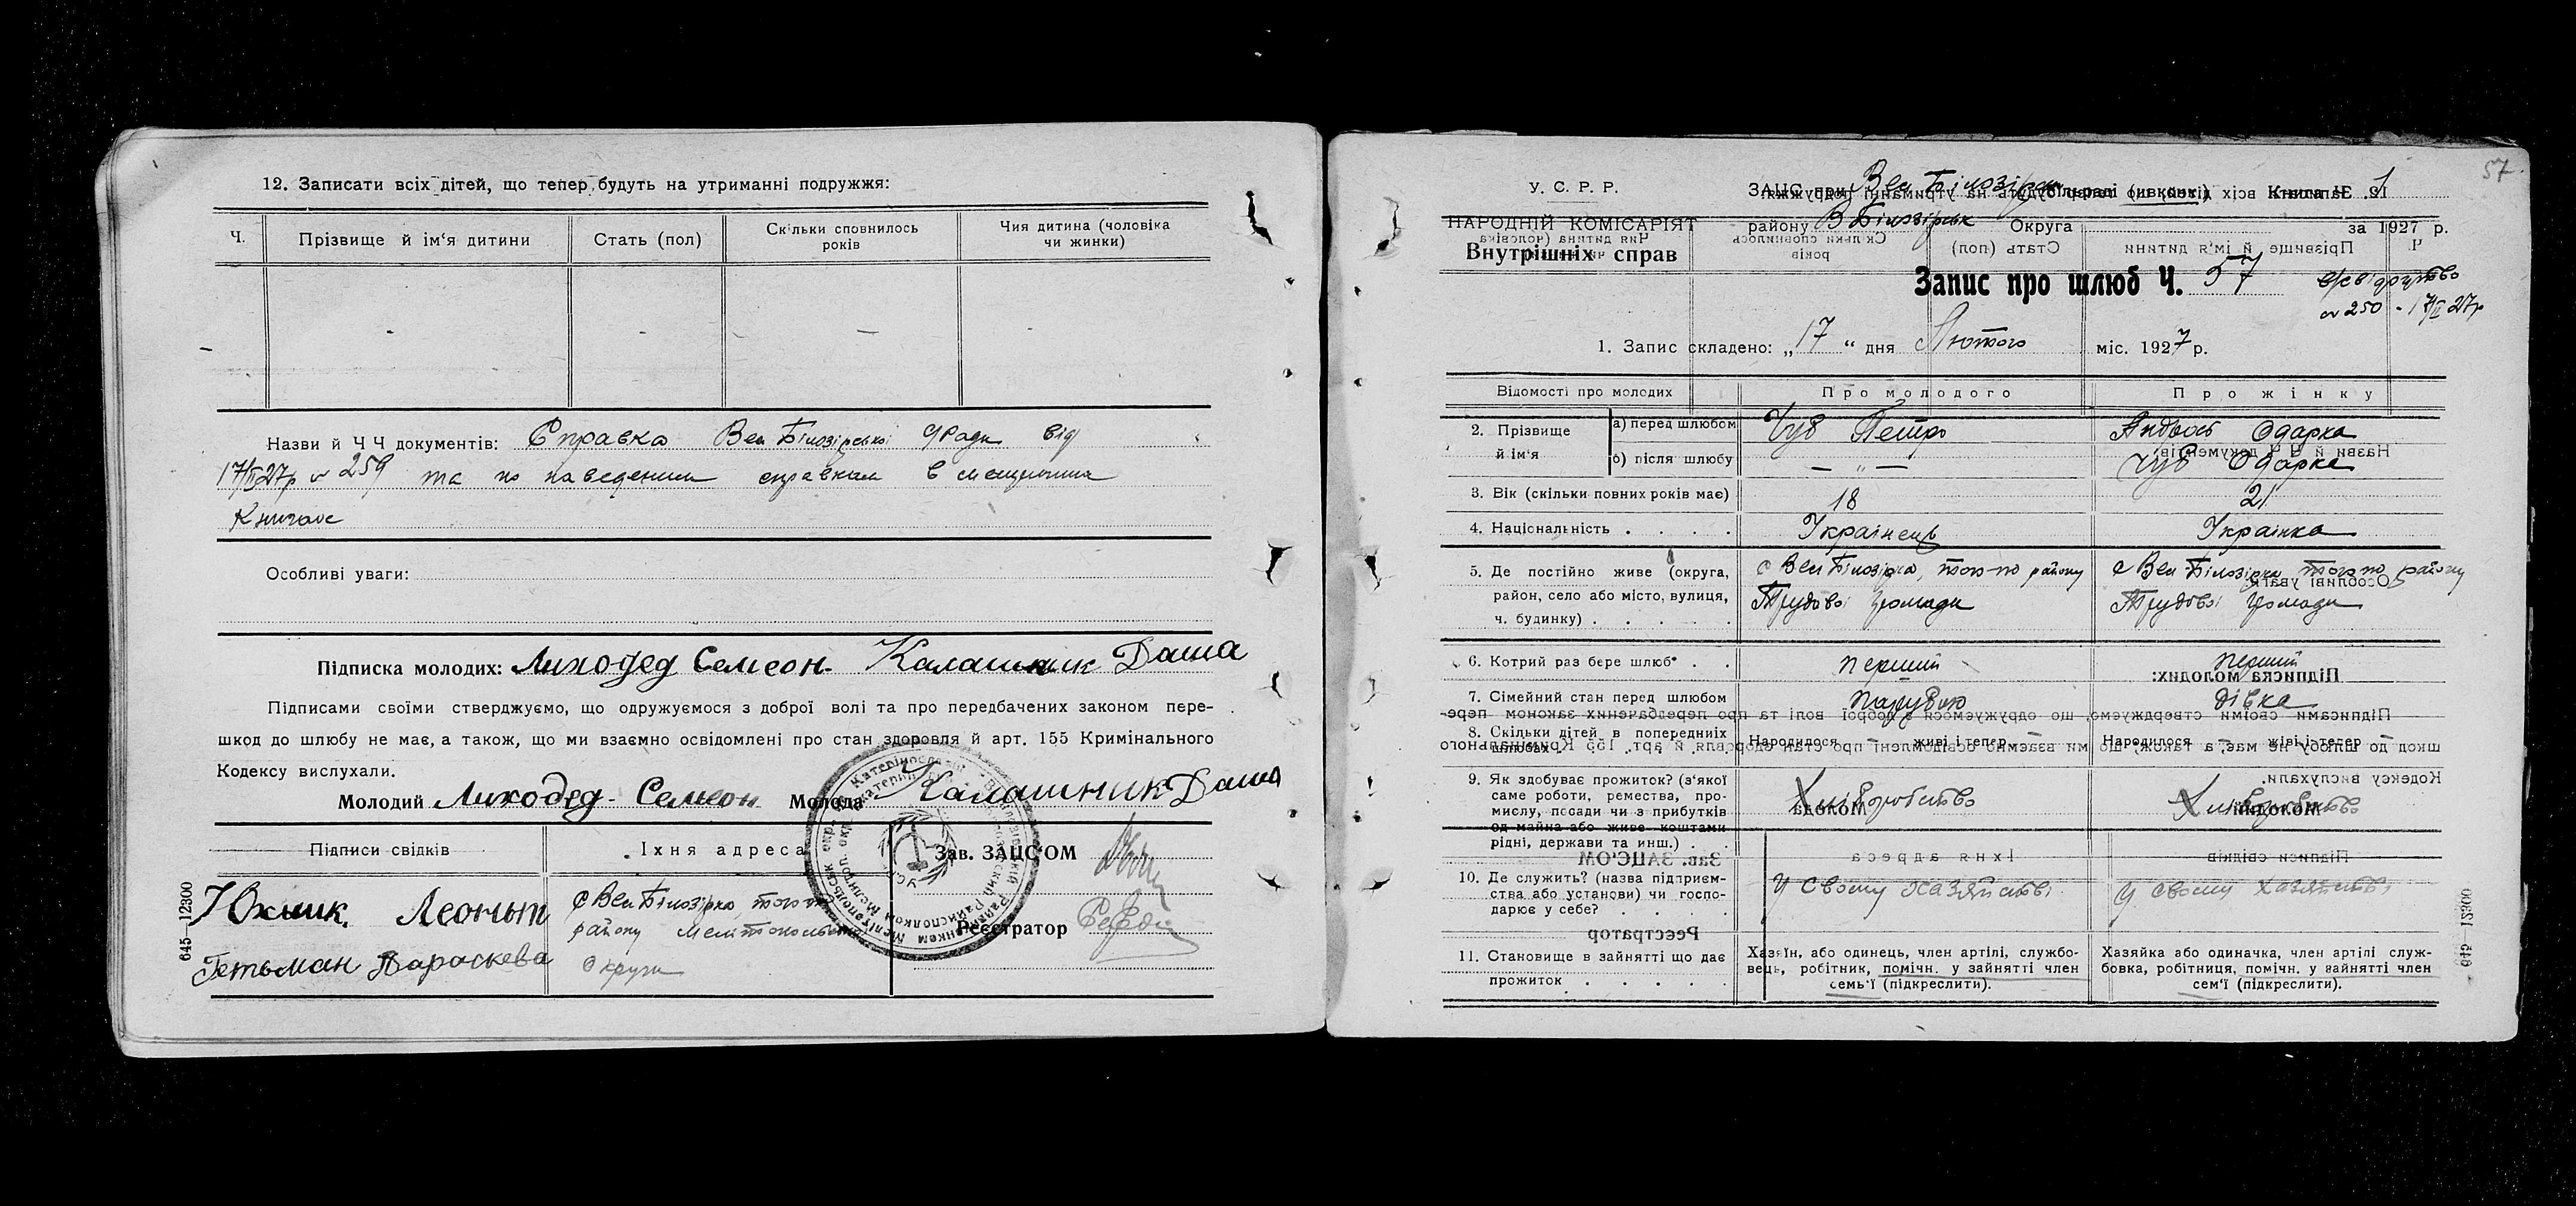 12. Записати всіх дітей, що тепер будуть на утриманні подружжя:
Ч.
Прізвище й ім'я дитини
Стать (пол)
Скільки сповнилось років
Чия дитина (чоловіка чи жинки)
Назви й Ч Ч документів: Справка Вел Білозірської с/Ради від
17/II 27р № 259 та по наведеним справкам в
Книгах
Особливі уваги:
Підписка молодих: Лиходед Семеон Калашник Даша
Підписами своїми стверджуємо, що одружуємося з доброї волі та про передбачених законом пере-
шкод до шлюбу не має, а також, що ми взаємно освідомлені про стан здоровля й арт. 155 Кримінального
Кодексу вислухали.
Молодий Лиходед Семеон Молода Калашник Даша
Підписи свідків
Їхня адреса
Зав. ЗАЦС'ОМ
Юхник Леонтій
с Вел Білозірка, того-ж
району Мелітопольської
Гетьман Параскева
Округи
Реєстратор
645—12300
57
У. С. Р. Р.
НАРОДНІЙ КОМІСАРІЯТ
Внутрішніх справ
ЗАЦС при Вел Білозірськ сільраді (ивконх) Книга Ч. 1
району В Білозірськ Округа за 1927 р.
Запис про шлюб Ч. 57
№ 250 - 17/II 27р
1. Запис складено: „17“ дня Лютого міс. 1927 р.
Відомості про молодих
Про молодого
Про жінку
2. Прізвище й ім'я
а) перед шлюбом Чуб Петро Одарка
б) після шлюбу — „ — Чуб Одарка
3. Вік (скільки повних років має) 18 21
4. Національність Українець Українка
5. Де постійно живе (округа, район, село або місто, вулиця, ч. будинку)
с Вел Білозірка, того-ж району
Трудової громади
с Вел Білозірка того-ж району
Трудової громади
6. Котрий раз бере шлюб перший перший
7. Сімейний стан перед шлюбом парубок дівка
8. Скільки дітей в попередніх шлюбах
Народилося — живі і тепер —
Народилося — живі і тепер —
9. Як здобуває прожиток? (з'якої саме роботи, ремества, промислу, посади чи з прибутків од майна або живе коштами рідні, держави та инш.)
Хліборобство
Хліборобство
10. Де служить? (назва підприємства або установи) чи господарює у себе?
У своему хазяйстві
У своему хазяйстві
11. Становище в зайнятті що дає прожиток
Хазяїн, або одинець, член артілі, службовець, робітник, помічн. у зайнятті член семь'ї (підкреслити).
Хазяйка або одиначка, член артілі службовка, робітниця, помічн. у зайнятті член сем'ї (підкреслити).